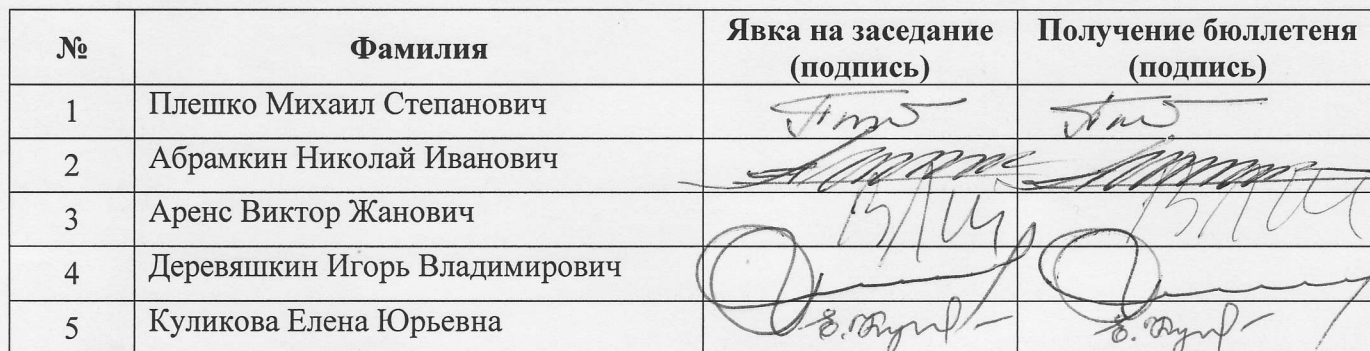 № Фамилия Явка на заседание Получение бюллетеня
(подпись) (подпись)
1 Плешко Михаил Степанович
2 Абрамкин Николай Иванович
3 Аренс Виктор Жанович
4 Деревяшкин Игорь Владимирович
5 Куликова Елена Юрьевна